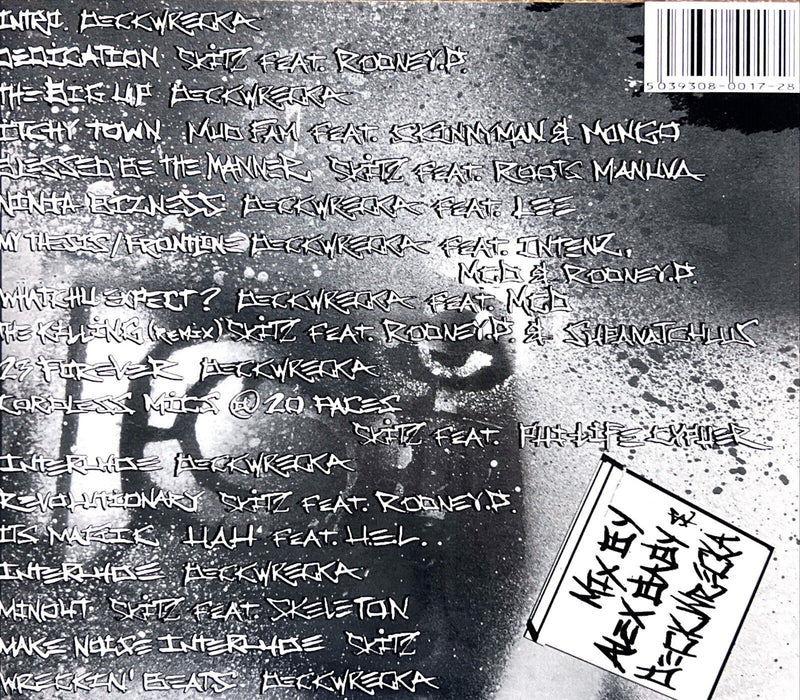 INTRO. DECKWRECKA
DEDICATION SKITZ FEAT. RODNEY.P.
THE BIG UP DECKWRECKA
ITCHY TOWN MUD FAM FEAT. SKINNYMAN & MONGO
BLESSED BE THE MANNER SKITZ FEAT. ROOTS MANUVA
NINJA BIZNESS DECKWRECKA FEAT. LEE
MY THESIS/FRONTLINE DECKWRECKA FEAT. INTENZ,
MCD & RODNEY.P.
WHATCHU EXPECT? DECKWRECKA FEAT. MCD
THE KILLING (REMIX) SKITZ FEAT. RODNEY.P. &
23 FOREVER DECKWRECKA
CORDLESS MICS @ 20 PACES
SKITZ FEAT.
INTERLUDE DECKWRECKA
REVOLUTIONARY SKITZ FEAT. RODNEY.P.
ITS MAGIK UAH FEAT. HEL..
INTERLUDE DECKWRECKA
MINOHT SKITZ FEAT. SKELETON
MAKE NOISE INTERLUDE SKITZ
WRECKIN' BEATS DECKWRECKA
5039308-0017-28
MIX BY
ALEX BABY &
DECKWRECKA